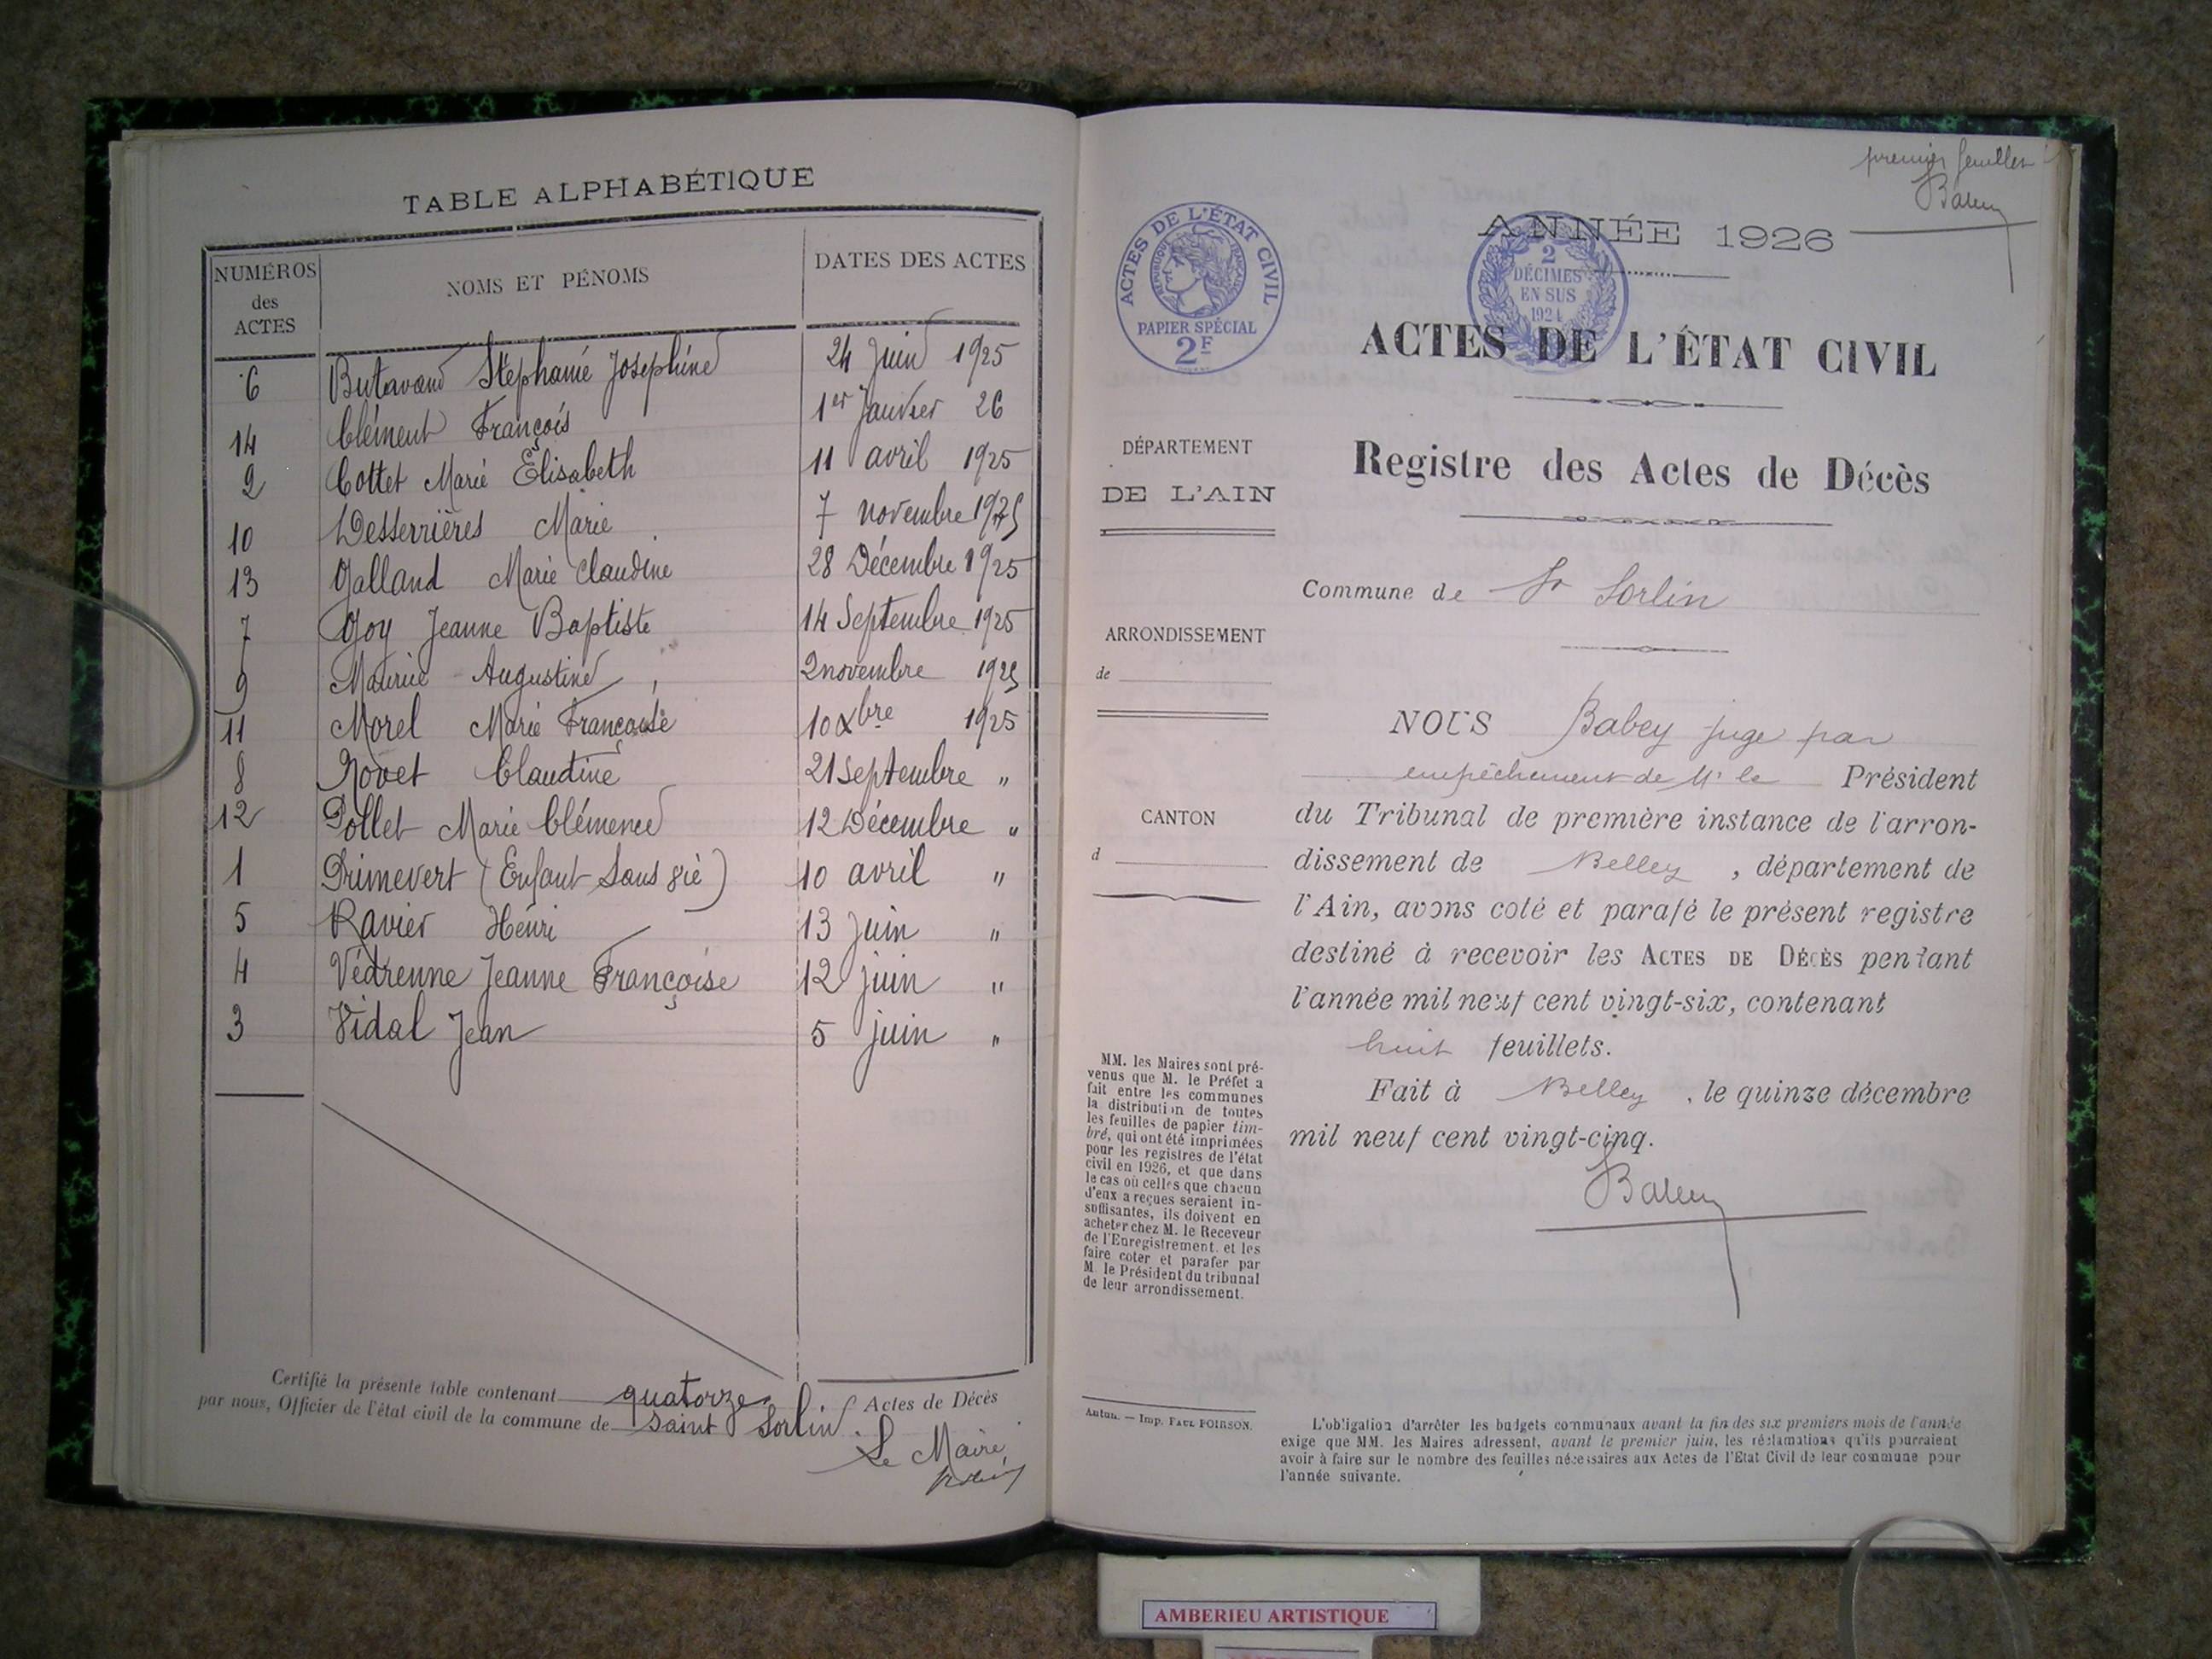 TABLE ALPHABÉTIQUE
NUMÉROS des ACTES NOMS ET PÉNOMS DATES DES ACTES
6 Butavand Stéphanie Joséphine 24 Juin 1925
14 Clément François 1er Janvier 26
2 Cottet Marie Élisabeth 11 avril 1925
10 Desserrières Marie 7 novembre 1925
13 Galland Marie Claudine 28 Décembre 1925
7 Goy Jeanne Baptiste 14 Septembre 1925
9 Maurice Augustine 2 novembre 1925
11 Morel Marie Françoise 10 Xbre 1925
8 Novet Claudine 21 Septembre "
12 Pollet Marie Clémence 12 Décembre "
1 Primevert (Enfant Sans vie) 10 avril "
5 Ravier Henri 13 Juin "
4 Védrenne Jeanne Françoise 12 juin "
3 Vidal Jean 5 juin "
Certifié la présente table contenant quatorze Actes de Décès
par nous, Officier de l'état civil de la commune de Saint Sorlin.
Le Maire
premier feuillet
Babey
ANNÉE 1926
ACTES DE L'ÉTAT CIVIL
RÉPUBLIQUE FRANÇAISE
PAPIER SPÉCIAL
2F
2
DÉCIMES
EN SUS
1924
ACTES DE L'ÉTAT CIVIL
Registre des Actes de Décès
DÉPARTEMENT
DE L'AIN
Commune de St Sorlin
ARRONDISSEMENT
de
CANTON
d
NOUS Babey juge par
empêchement de Mr le Président
du Tribunal de première instance de l'arron-
dissement de Belley, département de
l'Ain, avons coté et parafé le présent registre
destiné à recevoir les ACTES DE DÉCÈS pendant
l'année mil neuf cent vingt-six, contenant
huit feuillets.
Fait à Belley, le quinze décembre
mil neuf cent vingt-cinq.
Babey
MM. les Maires sont pré-
venus que M. le Préfet a
fait entre les communes
la distribution de toutes
les feuilles de papier tim-
bré, qui ont été imprimées
pour les registres de l'état
civil en 1926, et que dans
le cas où celles que chacun
d'eux a reçues seraient in-
suffisantes, ils doivent en
acheter chez M. le Receveur
de l'Enregistrement. et les
faire coter et parafer par
M. le Président du tribunal
de leur arrondissement.
Autun. — Imp. PAUL POIRSON.
L'obligation d'arrêter les budgets communaux avant la fin des six premiers mois de l'année
exige que MM. les Maires adressent, avant le premier juin, les réclamations qu'ils pourraient
avoir à faire sur le nombre des feuilles nécessaires aux Actes de l'Etat Civil de leur commune pour
l'année suivante.
AMBERIEU ARTISTIQUE